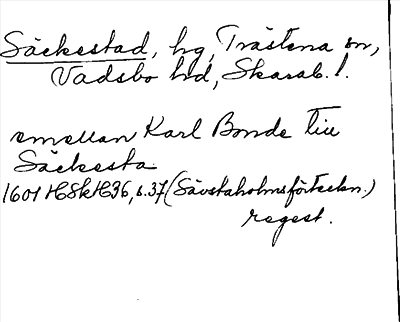 Säckestad, hg, Trästena sn,
Vadsbo hd, Skarab. l.
emellan Karl Bonde till
Säckesta
1601 HSkH36, s. 37 (Sävstaholmsförteckn.)
regest.